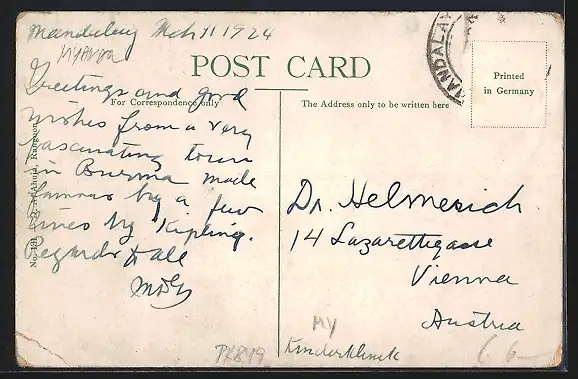 Mandalay Mch 11 1924
POST CARD
Greetings and good
wishes from a very
fascinating town
in Burma made
famous by a few
lines by Kipling.
Regards to all
For Correspondence only
No. 131. D. A. Ahuja, Rangoon
The Address only to be written here
MANDALAY
Printed
in Germany
Dr. Helmreich
14 Lazarettgasse
Vienna
Austria
MY
Kinderklinik
6 —